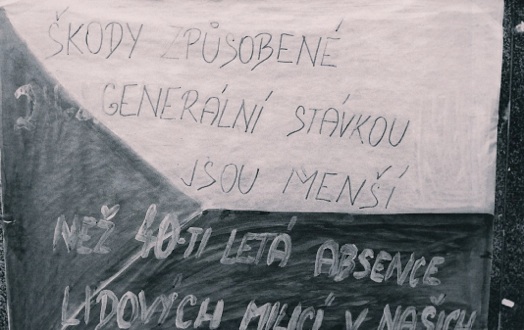 ŠKODY ZPŮSOBENÉ
GENERÁLNÍ STÁVKOU
JSOU MENŠÍ
NEŽ 40-TI LETÁ ABSENCE
LIDOVÝCH MILICÍ V NAŠICH